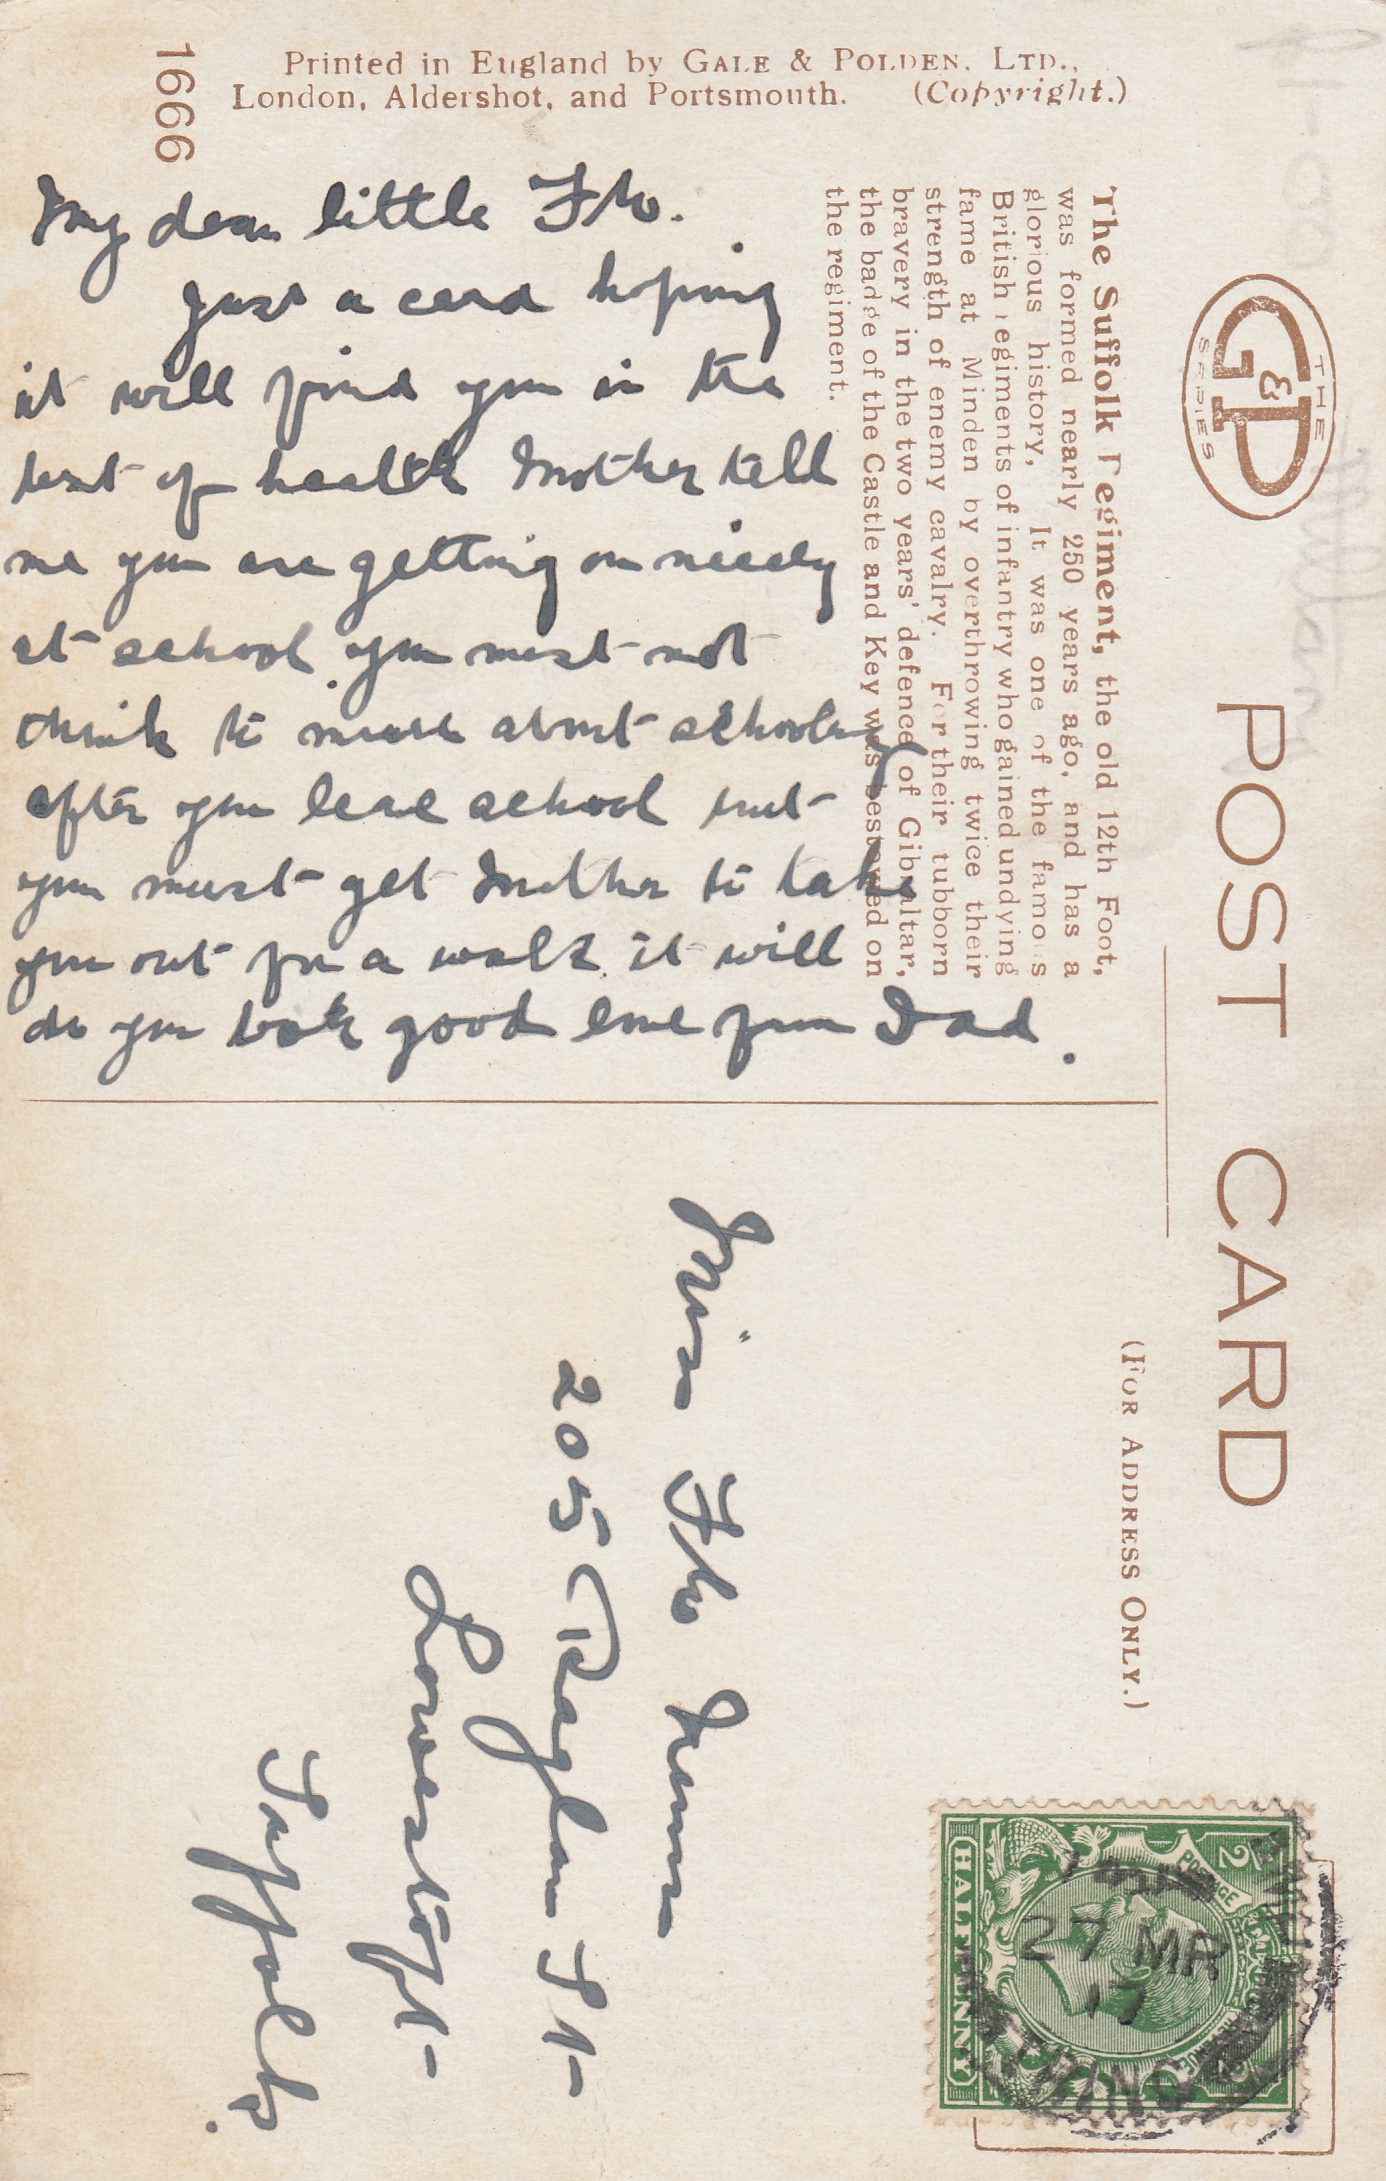 Printed in England by GALE & POLDEN, LTD.,
London, Aldershot, and Portsmouth. (Copyright.)
1666
My dear little Flo.
Just a card hoping
it will find you in the
best of health Mother tell
me you are getting on nicely
at school you must not
think to much about schooling
after you leave school but
you must get Mother to take
you out for a walk it will
do you both good love from Dad.
The Suffolk Regiment, the old 12th Foot,
was formed nearly 250 years ago, and has a
glorious history. It was one of the famous
British regiments of infantry who gained undying
fame at Minden by overthrowing twice their
strength of enemy cavalry. For their stubborn
bravery in the two years' defence of Gibraltar,
the badge of the Castle and Key was bestowed on
the regiment.
THE
G&P
SERIES
POST CARD
(FOR ADDRESS ONLY.)
Miss Flo
205 Raglan St
Lowestoft
Suffolk.
POSTAGE
HALFPENNY
27 MR
17